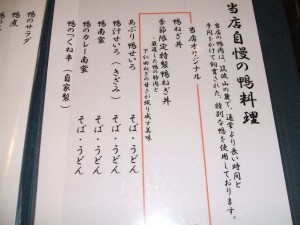 当店自慢の鴨料理
当店の鴨肉は、筑波山の麓で、通常より長い時間と
手間をかけて飼育された、特別な鴨を使用しております。
当店オリジナル
鴨ねぎ丼
季節限定特製鴨ねぎ丼
下仁田ねぎの甘さが織り成す美味
あぶり鴨せいろ そば・うどん
鴨汁せいろ(きざみ) そば・うどん
鴨南蛮 そば・うどん
鴨のカレー南蛮 そば・うどん
鴨のつくね串(自家製)
鴨煮
鴨のサラダ